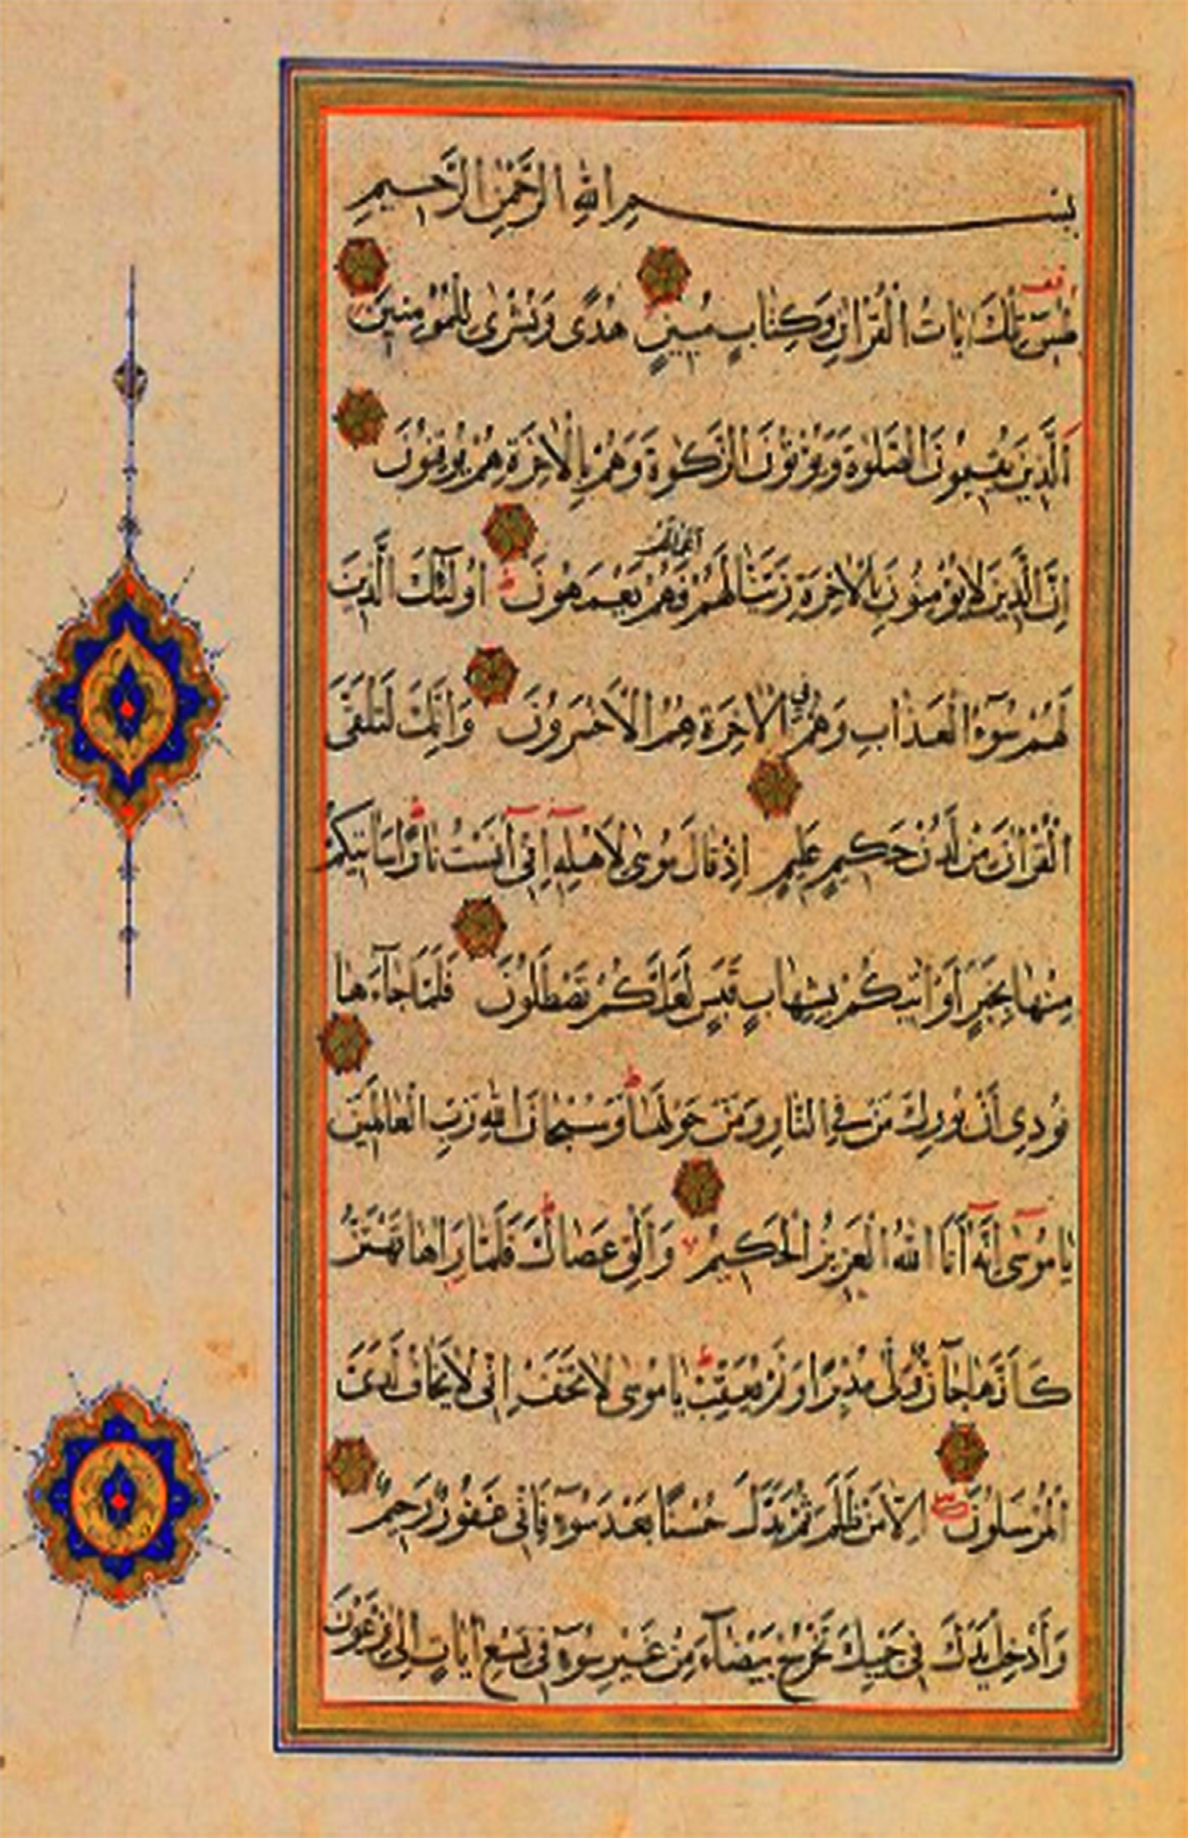 بسم الله الرحمن الرحيم
طس تلك ايات القران وكتاب مبين هدى وبشرى للمؤمنين
الذين يقيمون الصلوة ويؤتون الزكوة وهم بالاخرة هم يوقنون
ان الذين لا يؤمنون بالاخرة زينا لهم اعمالهم فهم يعمهون اولئك الذين
لهم سوء العذاب وهم في الاخرة هم الاخسرون وانك لتلقى
القران من لدن حكيم عليم اذ قال موسى لاهله اني آنست نارا ساتيكم
منها بخبر او اتيكم بشهاب قبس لعلكم تصطلون فلما جاءها
نودي ان بورك من في النار ومن حولها وسبحان الله رب العالمين
يا موسى انه انا الله العزيز الحكيم والق عصاك فلما راها تهتز
كانها جآن ولى مدبرا ولم يعقب يا موسى لا تخف اني لا يخاف لدي
المرسلون الا من ظلم ثم بدل حسنا بعد سوء فاني غفور رحيم
وادخل يدك في جيبك تخرج بيضاء من غير سوء في تسع ايات الى فرعون